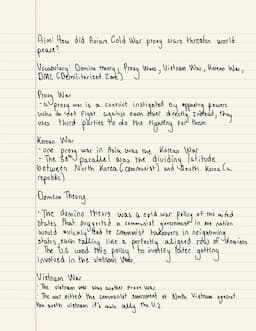 Aim: How did Asian Cold War proxy wars threaten world
peace?
Vocabulary: Domino theory, Proxy Wars, Vietnam War, Korean War,
DMZ (Demilitarized Zone)
Proxy War
- a proxy war is a conflict instigated by opposing powers
who do not fight against each other directly. Instead, they
uses third parties to do the fighting for them
Korean War
- one proxy war in Asia was the Korean War
- The 38th parallel was the dividing latitude
between North Korea (communist) and South Korea (a
republic).
Domino Theory
- The domino theory was a cold war policy of the united
states that suggested a communist government in one nation
would quickly lead to communist takeovers in neighboring
states, each falling like a perfectly aligned row of dominos
- The U.S used this policy to justify later getting
involved in the vietnam War.
Vietnam War
- The vietnam war was another proxy war
- The war pitted the communist government of North Vietnam against
the south vietnam it's main ally the U.S